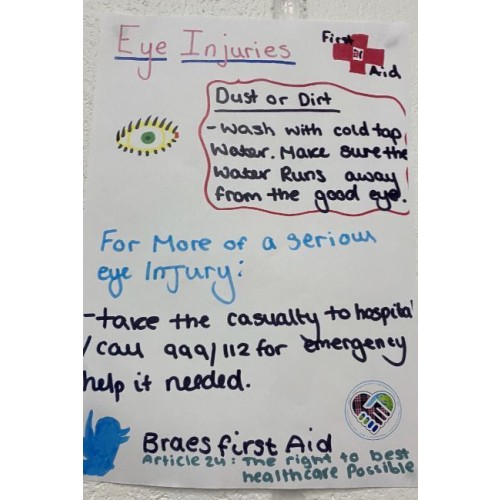 Eye Injuries
First
Aid
Dust or Dirt
- Wash with cold tap
Water. Make sure the
Water Runs away
from the good eye.
For More of a serious
eye Injury:
- take the casualty to hospital
/ call 999/112 for emergency
help if needed.
Braes first Aid
Article 24: The right to best
healthcare Possible